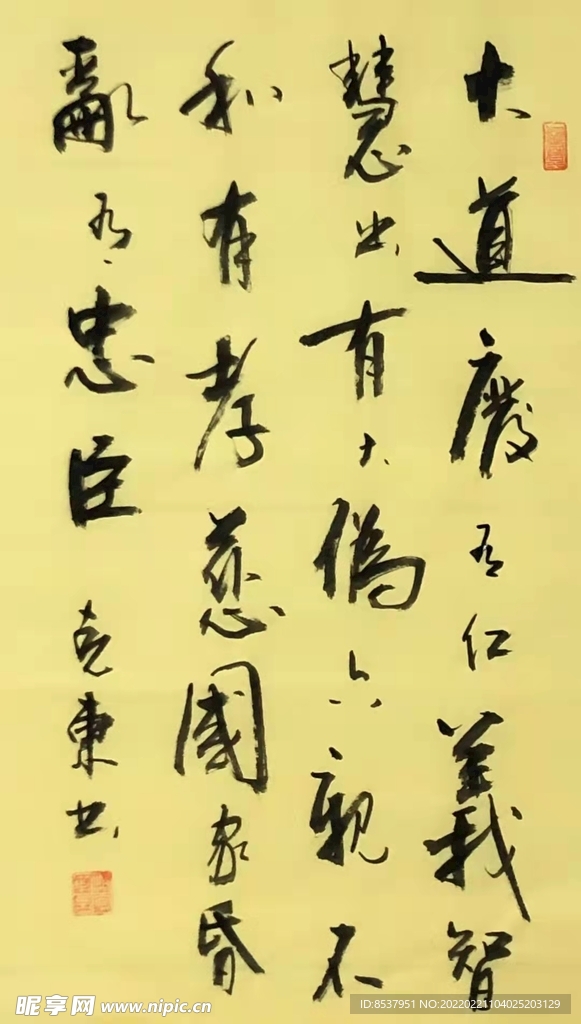 大道廢有仁義智
慧出有大偽六親不
和有孝慈國家昏
亂有忠臣 克東书
昵享网 www.nipic.cn
ID:8537951 NO:20220221104025203129